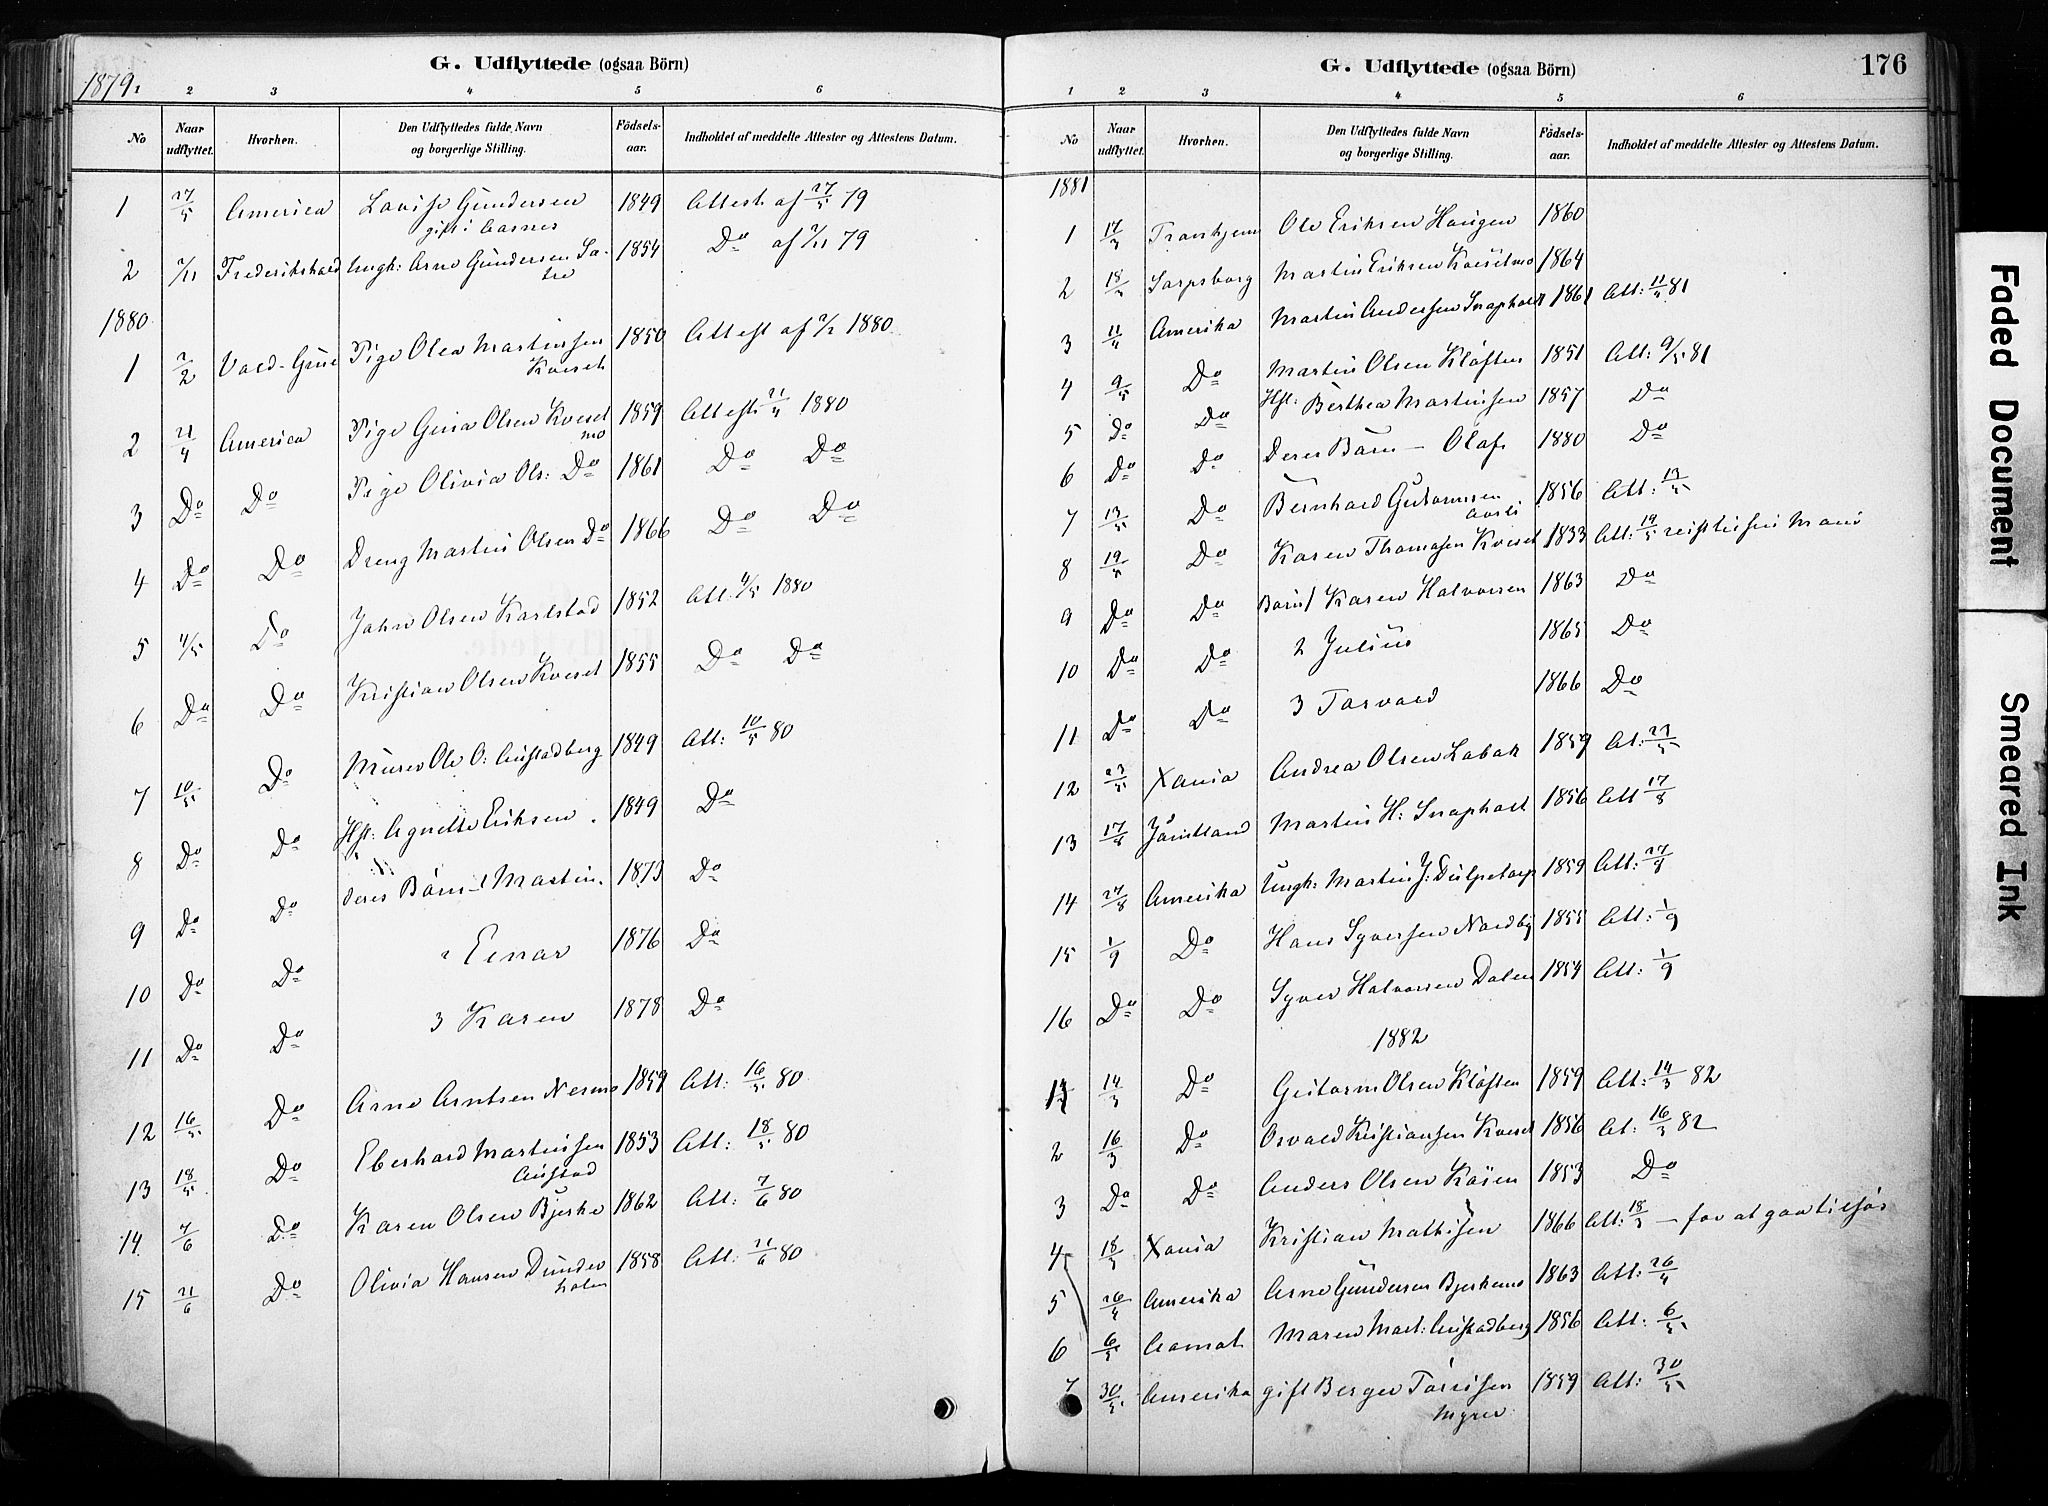 G. Udflyttede (ogsaa Börn)
1879
1 2 3 4 5 6
No Naar udflyttet. Hvorhen. Den Udflyttedes fulde Navn og borgerlige Stilling. Födselsaar. Indholdet af meddelte Attester og Attestens Datum.
1 27/5 America Lovise Gundersen 1849 Attest af 27/5 79
gift: Aasnes
2 Frederikshald Ungk: Arne Gundersen Sa- 1854 Do af 79
1880
1 2/2 Vaal-Grue Pige Olea Martinsen 1850 Attest af 2/2 1880
Kveset
2 21/4 America Pige Gina Olsen Kveset 1859 Attest 21/4 1880
mo
3 Do Do Pige Olivia Ols: Do 1861 Do Do
4 Do Do Dreng Martin Olsen Do 1866 Do Do
5 4/5 Do Johan Olsen Karlstad 1852 Att. 4/5 1880
6 Do Do Kristian Olsen Kveset 1855 Do Do
7 10/5 Do Murer Ole O: Austadberg 1849 Att: 10/5 80
8 Do Do Hst: Agnethe Eriksen 1849 Do
9 Do Do deres Börn 1 Martin 1873 Do
10 Do Do 2 Einar 1876 Do
11 Do Do 3 Karen 1878 Do
12 16/5 Do Arne Arntsen Nermo 1859 Att: 16/5 80
13 18/5 Do Eberhard Martinsen 1853 Att: 18/5 80
Austad
14 7/6 Do Karen Olsen Bjerke 1862 Att: 7/6 80
15 21/6 Do Olivia Hansen Dunder 1858 Att: 21/6 80
holen
G. Udflyttede (ogsaa Börn)
176
1 2 3 4 5 6
No Naar udflyttet. Hvorhen. Den Udflyttedes fulde Navn og borgerlige Stilling. Födselsaar. Indholdet af meddelte Attester og Attestens Datum.
1881
1 17/3 Tronhjem Ole Eriksen Haugen 1860
2 18/3 Sarpsborg Martin Eriksen Kvesetmo 1864
3 11/4 Amerika Martin Andersen Snapholt 1861 Att: 11/4 81
4 9/5 Do Martin Olsen Kløften 1851 Att: 9/5 81
5 Do Do Hst: Berthea Martinsen 1857 Do
6 Do Do Deres Barn – Olaf 1880 Do
7 13/5 Do Bernhard Gutormsen 1856 Att: 13/5
8 19/5 Do Karen Thomasen Kveset 1833 Att: 19/5 reist til sin Mand
9 Do Do Børn 1 Karen Halvorsen 1863 Do
10 Do Do 2 Julius 1865 Do
11 Do Do 3 Torvald 1866 Do
12 23/5 Xania Andrea Olsen Labak 1859 At: 23/5
13 17/8 Jämtland Martin H: Snapholt 1856 Att 17/8
14 27/8 Amerika Ungk: Martin J: Dulpetorp 1859 Att: 27/8
15 1/9 Do Hans Syversen Nordby 1855 Att: 1/9
16 Do Do Syver Halvorsen Dalen 1854 Att: 1/9
1882
1 14/3 Do Gutorm Olsen Kløften 1859 Att: 14/3 82
2 16/3 Do Osvald Kristiansen Kveset 1856 At: 16/3 82
3 Do Do Anders Olsen Køien 1853 Do
4 18/3 Xania Kristian Mathisen 1866 Att: 18/3 – for at gaa tilsjøs
5 26/4 Amerika Arne Gundersen Bjerkemo 1863 Att: 26/4
6 6/5 Aamot Maren Mart: Austadberg 1856 Att: 6/5
7 30/5 Amerika gift Berger Torrisen 1859 Att: 30/5
Myren
Faded Document
Smeared Ink